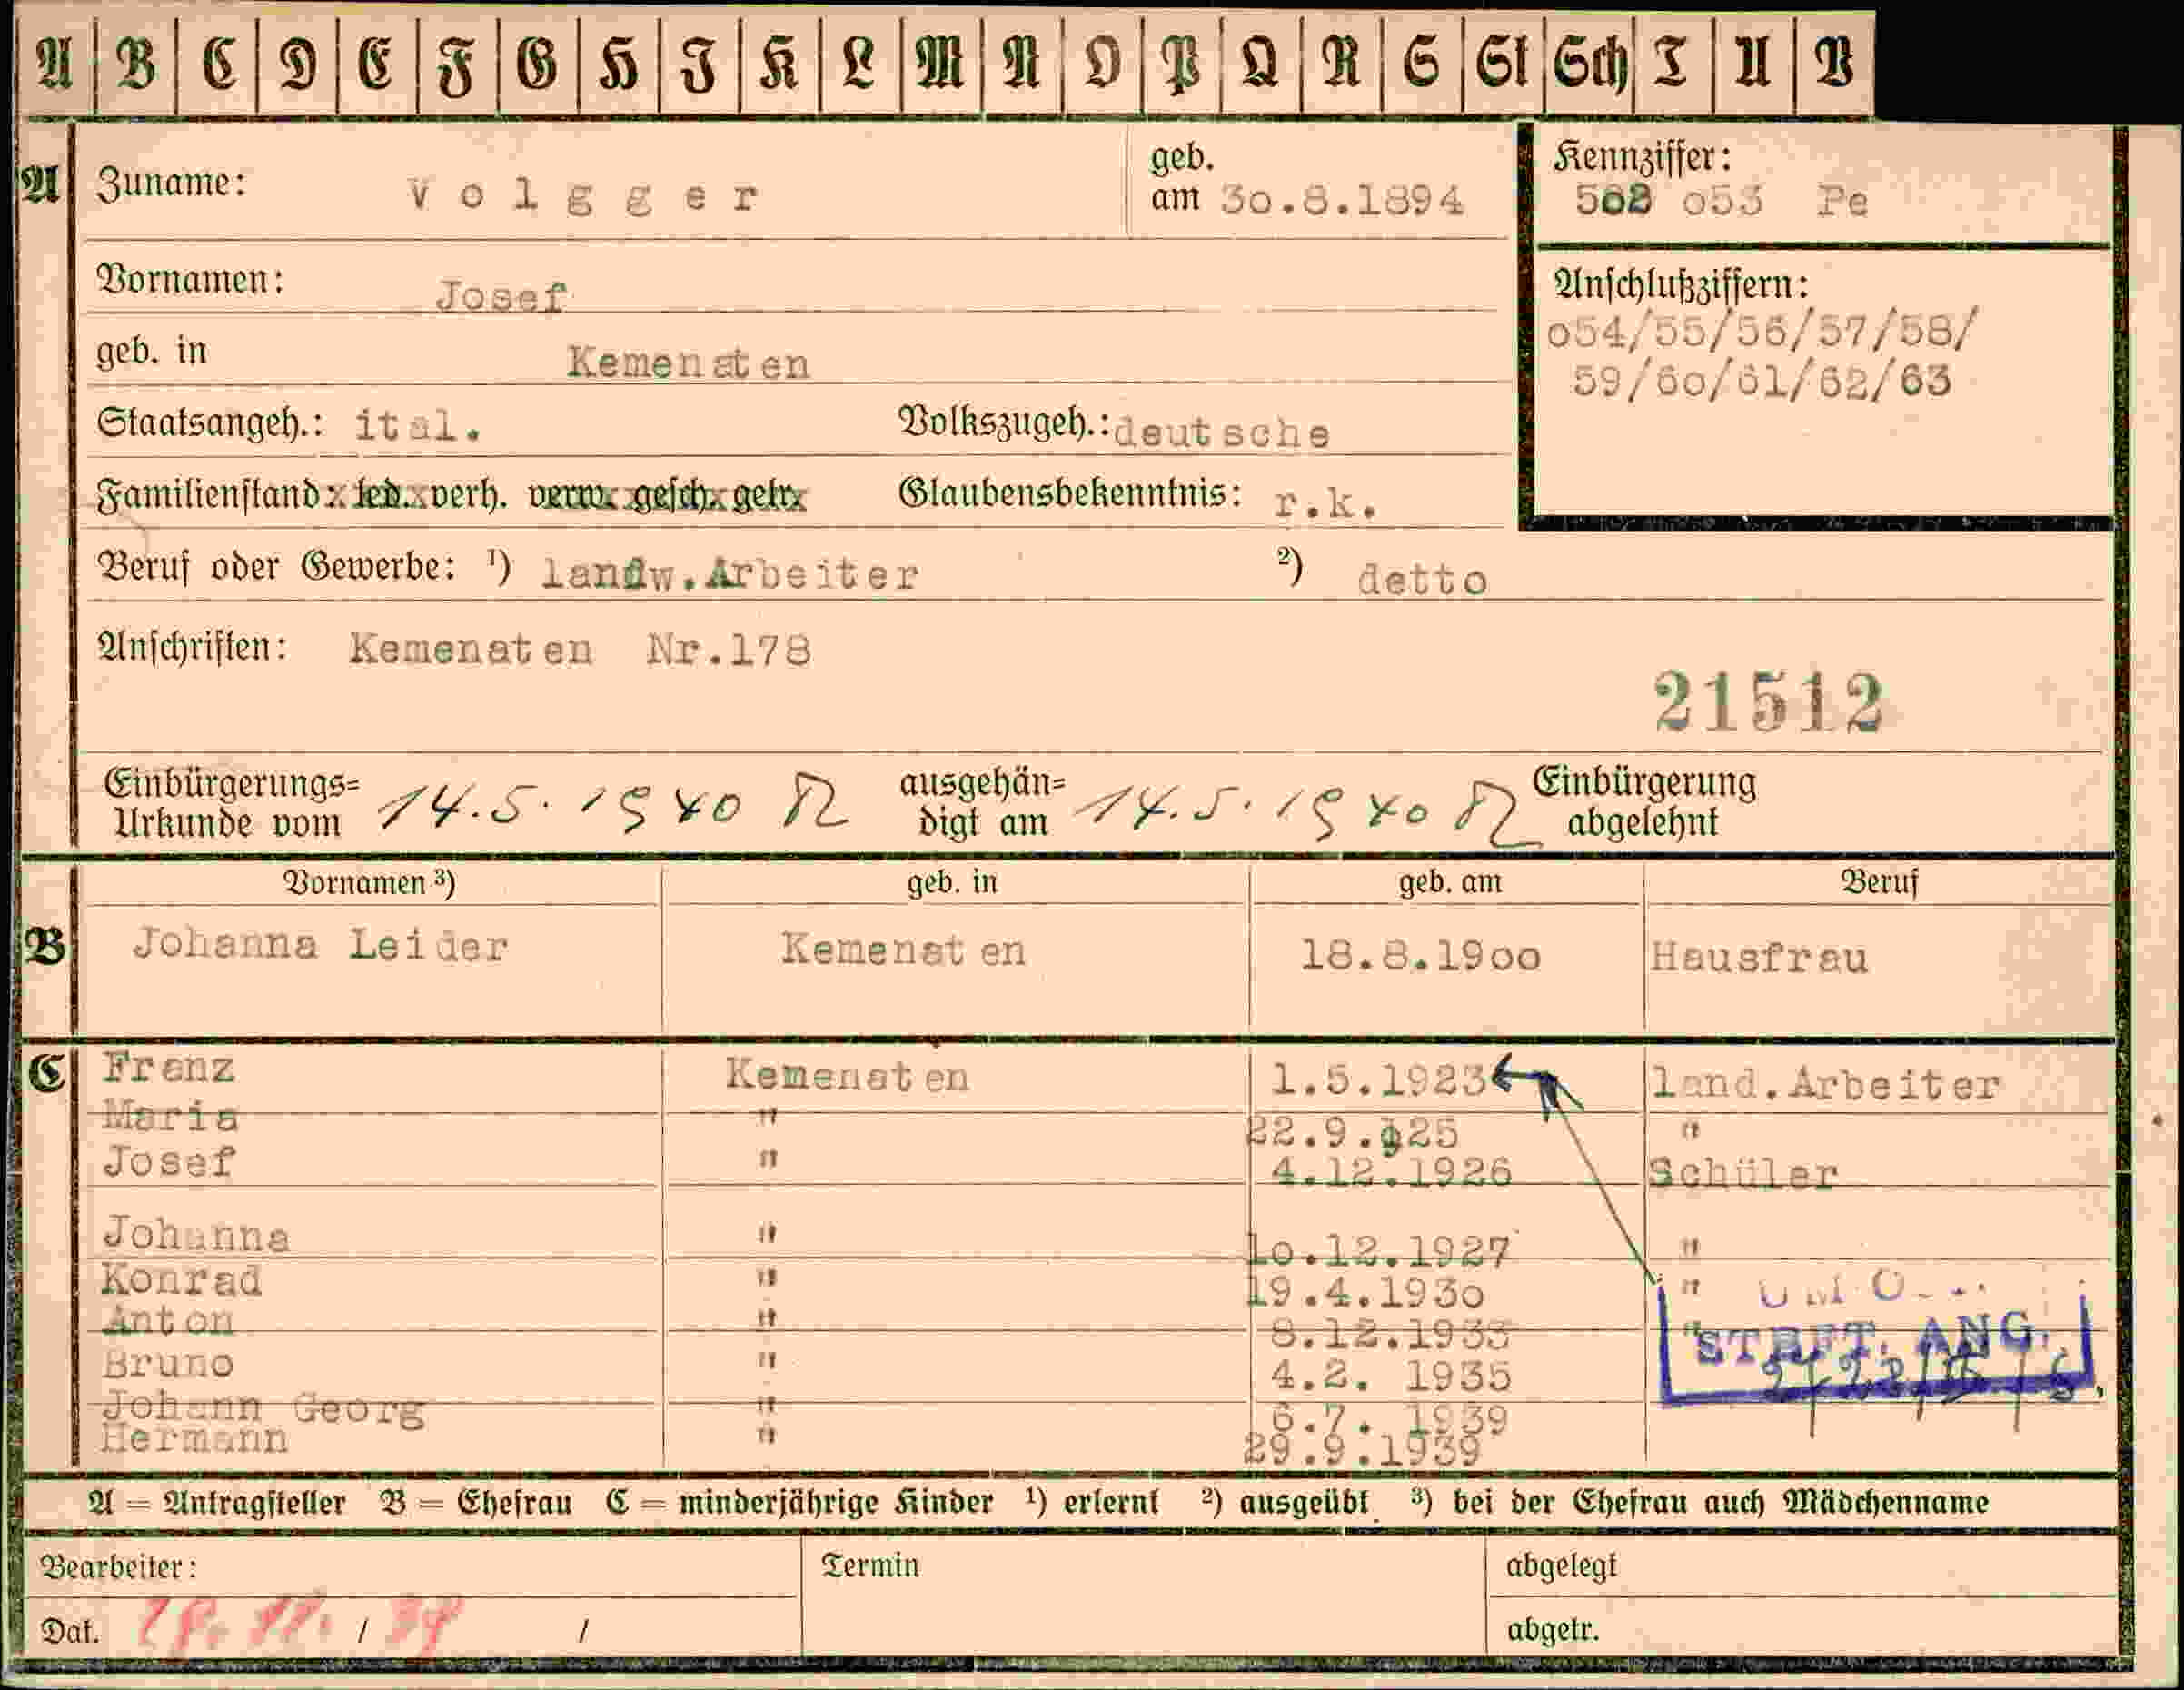 A B C D E F G H J K L M N O P Q R S St Sch T U V
A Zuname: V o l g g e r geb. am 30.8.1894
Kennziffer: 502 o53 Pe
Vornamen: Josef
Anschlußziffern:
o54/55/56/57/58/
59/6o/61/62/63
geb. in Kemenaten
Staatsangeh.: ital. Volkszugeh.: deutsche
Familienstand: led. verh. verw. gesch. getr. Glaubensbekenntnis: r.k.
Beruf oder Gewerbe: ¹) landw.Arbeiter ²) detto
Anschriften: Kemenaten Nr.178
21512
Einbürgerungs=Urkunde vom 14.5.1940 ausgehän=digt am 14.5.1940 Einbürgerung abgelehnt
Vornamen ³) geb. in geb. am Beruf
B Johanna Leider Kemenaten 18.8.19oo Hausfrau
C Franz Kemenaten 1.5.1923 land.Arbeiter
Maria " 22.9.925 "
Josef " 4.12.1926 Schüler
Johanna " 1o.12.1927 "
Konrad " 19.4.193o "
Anton " 8.12.1933 "
STRFT. ANG.
Bruno " 4.2. 1935
Johann Georg " 6.7. 1939
Hermann " 29.9.1939
A = Antragsteller B = Ehefrau C = minderjährige Kinder ¹) erlernt ²) ausgeübt ³) bei der Ehefrau auch Mädchenname
Bearbeiter: Termin abgelegt
Dat. / / abgetr.